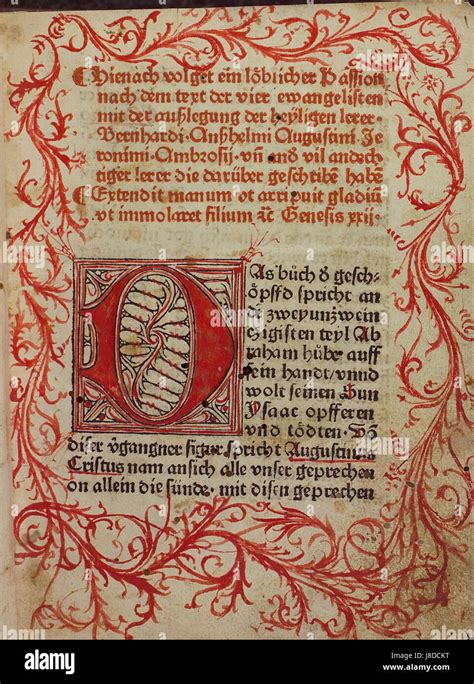 Hienach volget ein löblicher Passion
nach dem text der vier ewangelisten
mit der außlegung der heyligen lerer
Bernhardi· Anßhelmi Augustini Je
ronimi· Ambrosij· vñ and vil andech
tiger lerer die darüber geschribē habē
Extendit manum ⁊ arripuit gladiū
vt immolaret filium ⁊c̄ Genesis xxij·
DAs büch d̄ gesch
öpffd spricht an
dē zweyunzwein
zigisten teyl Ab
raham hübe auff
sein handt· vnnd
wolt seinen Sun
Ysaac opfferen
vnd tödten·
diser vergangner figur spricht Augustinus
Cristus nam ansich alle vnser geprechen
on allein die sünde· mit disen geprechen
alamy
Image ID: J8DCKT
www.alamy.com